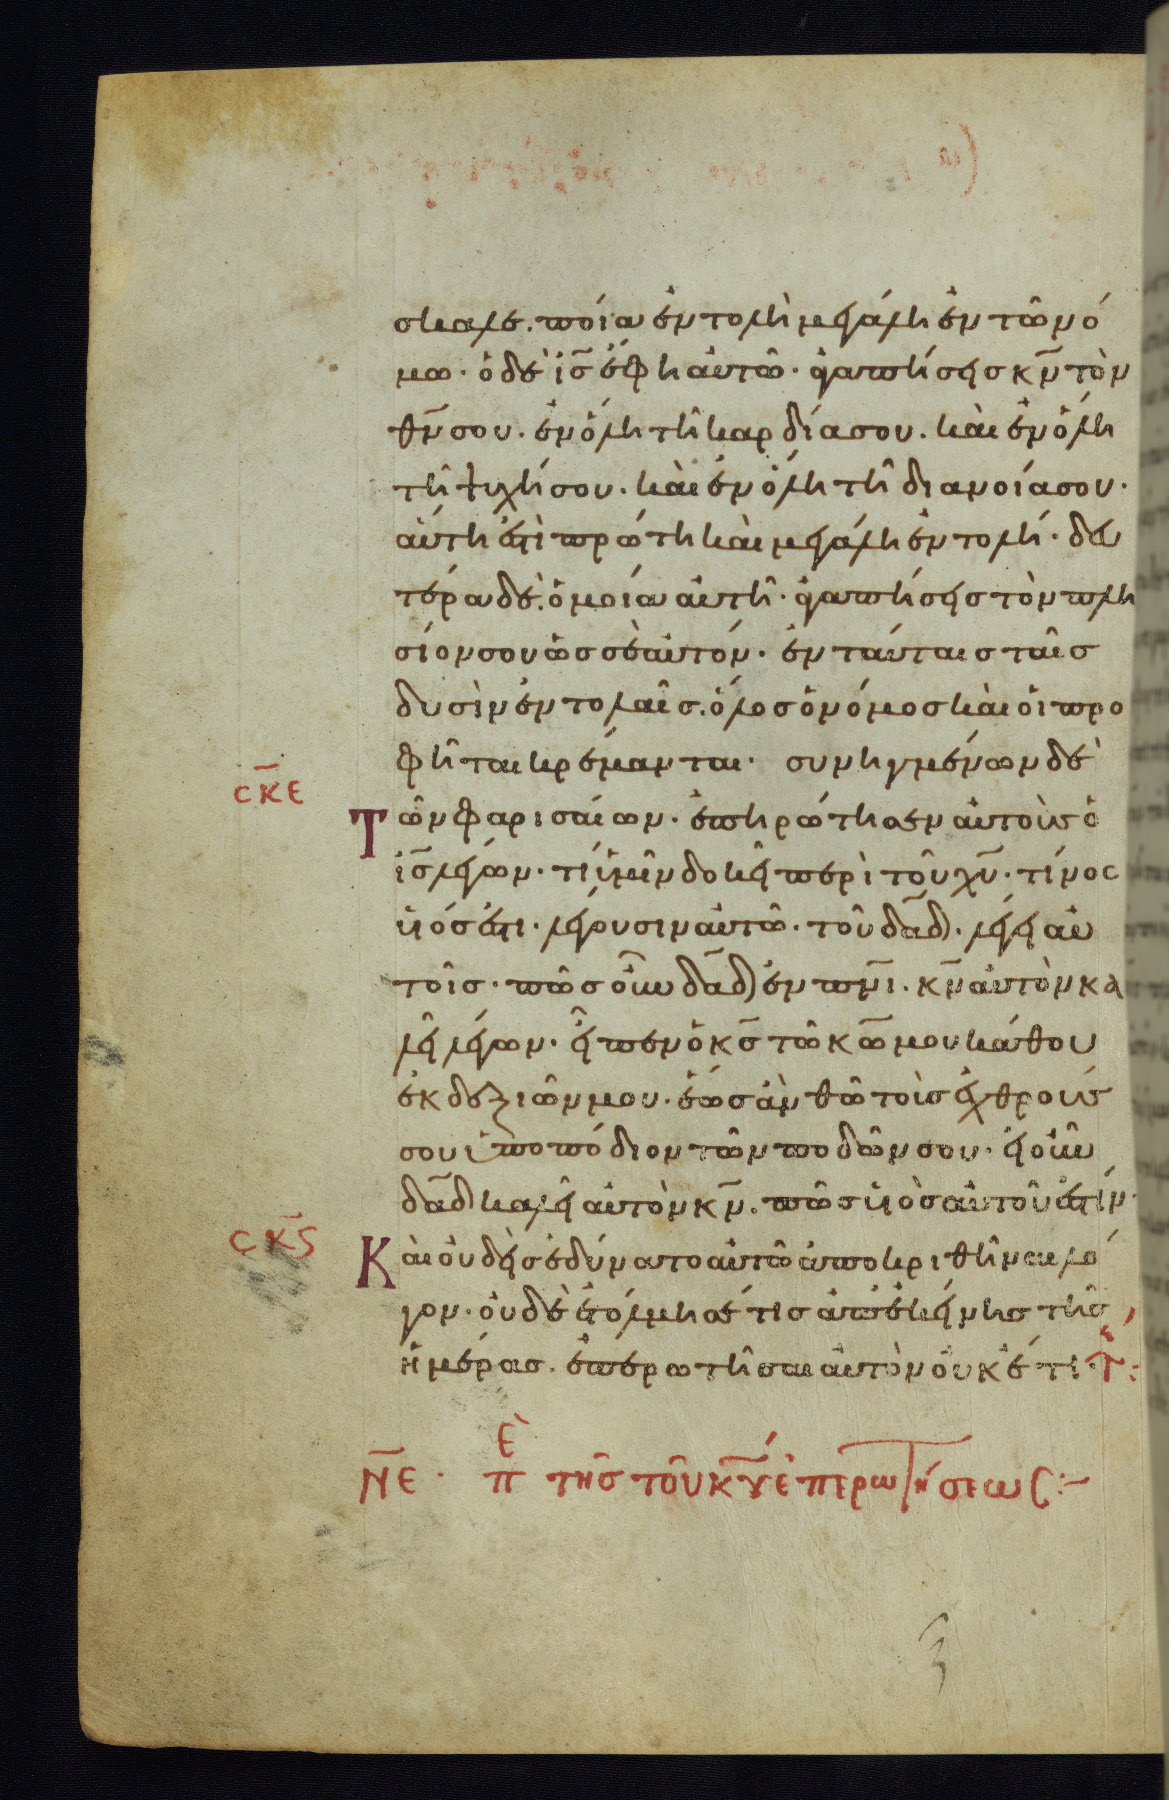 σκαλε. ποία ἐντολὴ μεγάλη ἐν τῶ νό
μω· ὁ δὲ ἰ̅ς̅ ἔφη αὐτῶ· ἀγαπήσεις κ̅ν̅ τὸν
θ̅ν̅ σου. ἐν ὅλη τῆ καρδία σου. καὶ ἐν ὅλη
τῆ ψυχῆ σου. καὶ ἐν ὅλη τῆ διανοία σου·
αὕτη ἐστὶ πρώτη καὶ μεγάλη ἐντολή· δευ
τέρα δὲ. ὁμοία αὐτῆ· ἀγαπήσεις τὸν πλη
σίον σου ὡς σὲ αὐτόν· ἐν ταύταις ταῖς
δυσὶν ἐντολαῖς. ὅλος ὁ νόμος καὶ οἱ προ
φῆται κρέμανται· συνηγμένων δὲ
ϲ̅κ̅ε̅
τῶν φαρισαίων. ἐπηρώτησεν αὐτοὺς ὁ
ἰ̅ς̅ λέγων· τί ὑμῖν δοκεῖ περὶ τοῦ χ̅υ̅· τίνος
υἱός ἐστι· λέγουσιν αὐτῶ· τοῦ δ̅α̅δ̅· λέγει αὐ
τοῖς· πῶς οὖν δ̅α̅δ̅ ἐν π̅ν̅ι̅. κ̅ν̅ αὐτὸν κα
λεῖ λέγων· εἶπεν ὁ κ̅ς̅ τῶ κ̅ω̅ μου κάθου
ἐκ δεξιῶν μου. ἕως ἂν θῶ τοὺς ἐχθρούς
σου ὑποπόδιον τῶν ποδῶν σου· εἰ οὖν
δ̅α̅δ̅ καλεῖ αὐτὸν κ̅ν̅. πῶς υἱὸς αὐτοῦ ἐστίν·
ϲ̅κ̅ϛ̅
Καὶ οὐδεὶς ἐδύνατο αὐτῶ ἀποκριθῆναι λό
γον· οὐδὲ ἐτόλμησέ τις ἀπ' ἐκείνης τῆς
ἡμέρας. ἐπερωτῆσαι αὐτὸν οὐκέτι·
Ν̅Ε̅ · πε τῆς τοῦ κ̅υ̅ ἐπερωτήσεως:-